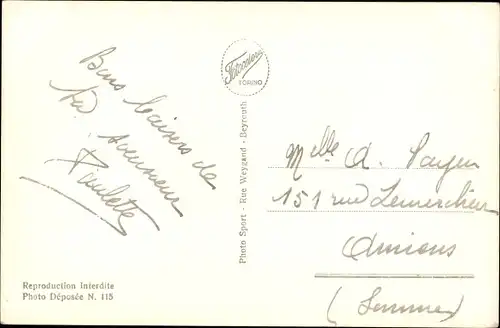 Bons baisers de
ta soeunneur
Paulette
Ferrania
TORINO
Photo Sport - Rue Weygand - Beyrouth
Melle A. Payen
151 rue Lemerchier
Amiens
(Somme)
Reproduction Interdite
Photo Déposée N. 115